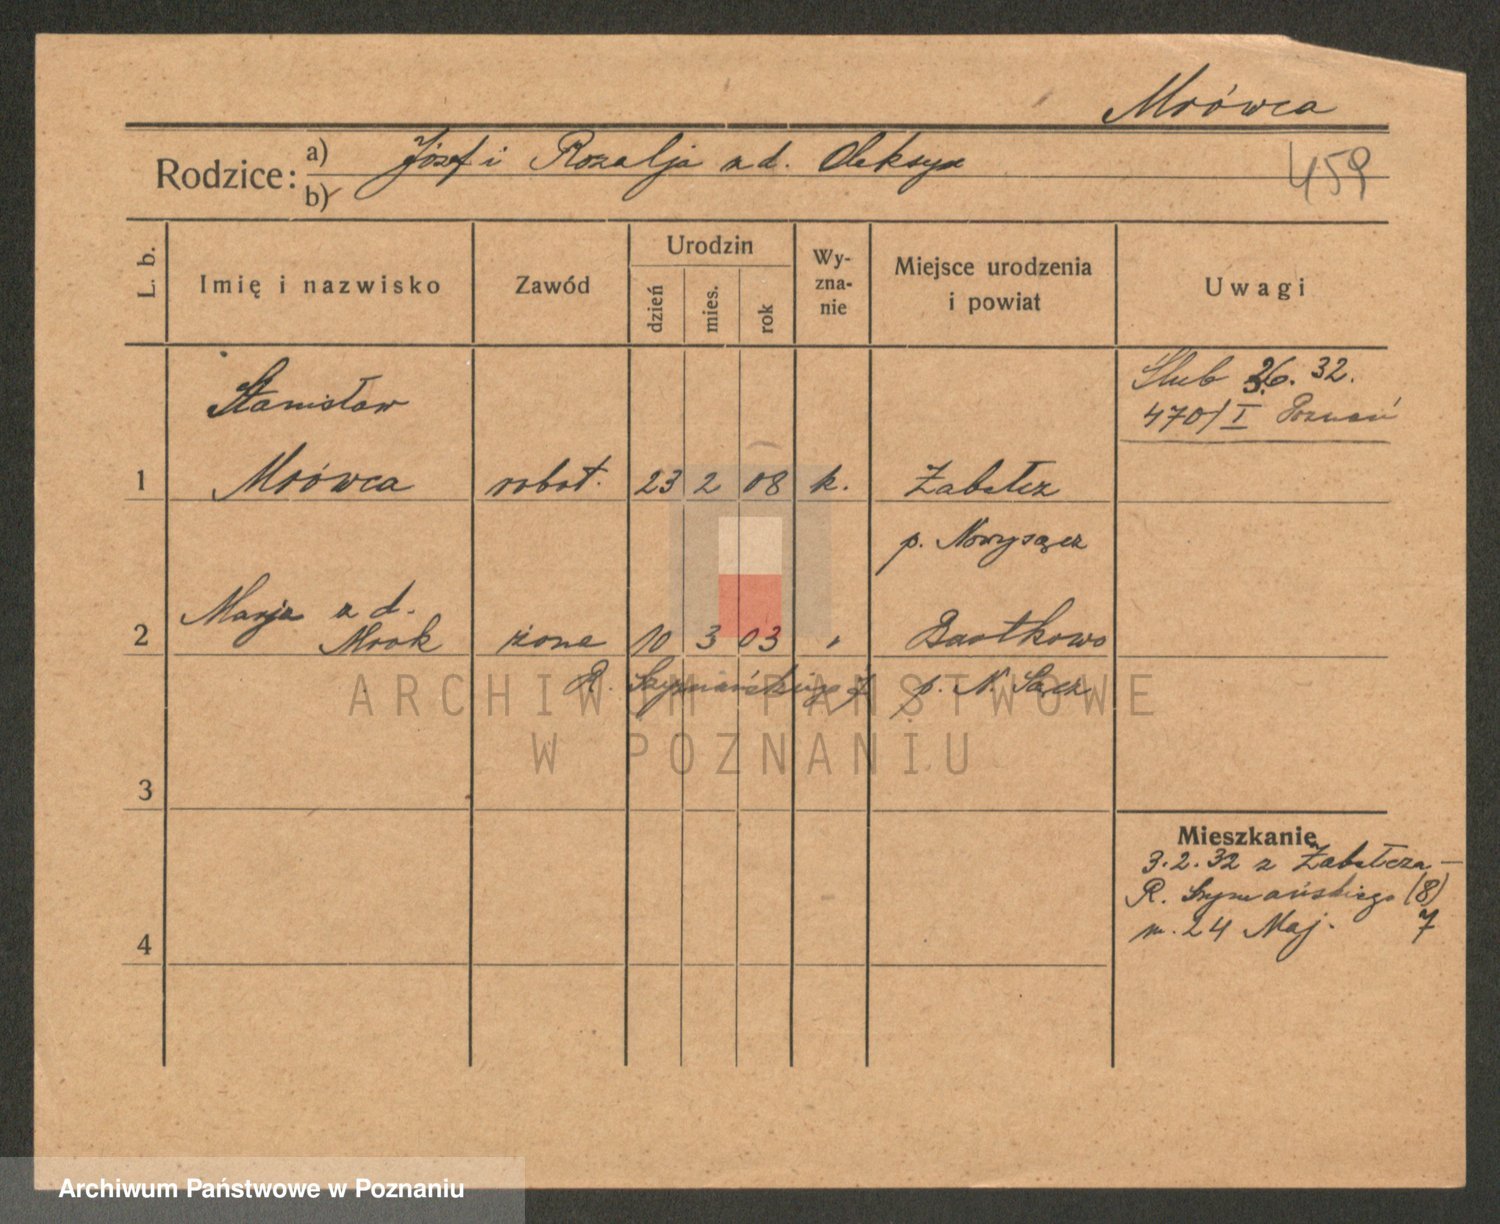 Mrówca
Rodzice: a) Józef i Rozalja z d. Oleksyx
b)
459
L. b. Imię i nazwisko Zawód Urodzin dzień mies. rok Wy-zna-nie Miejsce urodzenia i powiat Uwagi
Ślub 26. 32.
Stanisław
470/I Poznań
1 Mrówca robot. 23 2 08 k. Żabełcz
p. Nowysącz
Marja z d.
2 Mrok żona 10 3 03 " Bartkowo
R. Szymańskiego 7 p. N. Sącz
ARCHIWUM PAŃSTWOWE
W POZNANIU
3
Mieszkanie
3.2.32 z Żabełcza –
R. Szymańskiego (8)
m. 24 Maj. 7
4
Archiwum Państwowe w Poznaniu